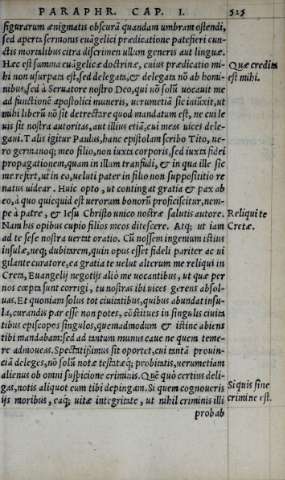 PARAPHR. CAP. I. 525
figurarum ænigmatis obscurā quandam umbram ostendi,
sed aperta sermonis euāgelici prædicatione patefieri cun-
ctis mortalibus citra discrimen ullam generis aut linguæ.
Hæc est summa euāgelicæ doctrinæ, cuius prædicatio mi-
Quæ credita
hi non usurpata est, sed delegata, & delegata nō ab homi-
est mihi.
nibus, sed à Seruatore nostro Deo, qui nō solū uocauit me
ad functionē apostolici muneris, uerumetiā sic iniūxit, ut
mihi liberū nō sit detrectare quod mandatum est, ne cui le
uis sit nostra autoritas, aut illius etiā, cui meas uices dele-
gaui. Talis igitur Paulus, hanc epistolam scribo Tito, ue-
ro germanoq́; meo filio, non iuxta corporis, sed iuxta fidei
propagationem, quam in illum transfudi, & in qua ille sic
me refert, ut in eo, ueluti pater in filio non supposititio re
natus uidear. Huic opto, ut contingat gratia & pax ab
eo, à quo quicquid est uerorum bonorū proficiscitur, nem-
pe à patre, & Iesu Christo unico nostræ salutis autore.
Reliqui te
Nam his opibus cupio filios meos ditescere. Atq; ut iam
Cretæ.
ad te sese nostra uertat oratio. Cū nossem ingenium istius
insulæ, neq; dubitarem, quin opus esset fideli pariter ac ui
gilante curatore, ea gratia te uelut alterum me reliqui in
Creta, Euangelij negotijs aliò me uocantibus, ut quæ per
nos cœpta sunt corrigi, tu nostras ibi uices gerens absol-
uas. Et quoniam solus tot ciuitatibus, quibus abundat insu-
la, curandis par esse non potes, cōstitues in singulis ciuita
tibus episcopos singulos, quemadmodum & istinc abiens
tibi mandabam: sed ad tantum munus caue ne quem teme-
re admoueas. Spectatissimus sit oportet, cui tantā prouin-
ciā deleges, nō solū notæ testatæq́; probitatis, uerumetiam
alienus ab omni suspicione criminis. Quē quò certius deli-
gas, notis aliquot eum tibi depingam. Si quem cognoueris
Si quis sine
ijs moribus, eaq́; uitæ integritate, ut nihil criminis illi
crimine est.
probab